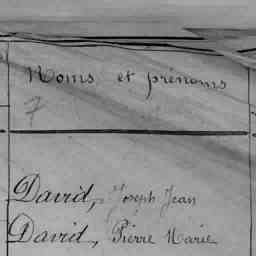 Noms et prénoms
7
David, Joseph Jean
David, Pierre Marie